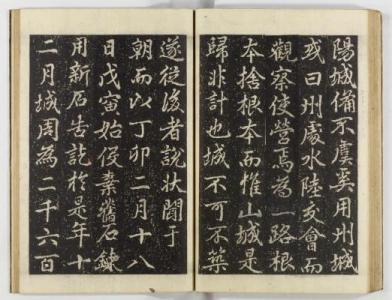 陽城備不虞奚用州城
或曰州處水陸交會而
觀察使營焉為一路根
本捨根本而惟山城是
歸非計也城不可不築
遂從後者說狀聞于
朝而以丁卯二月十八
日戊寅始伐棄舊石鍊
用新石告訖於是年十
二月城周為二千六百